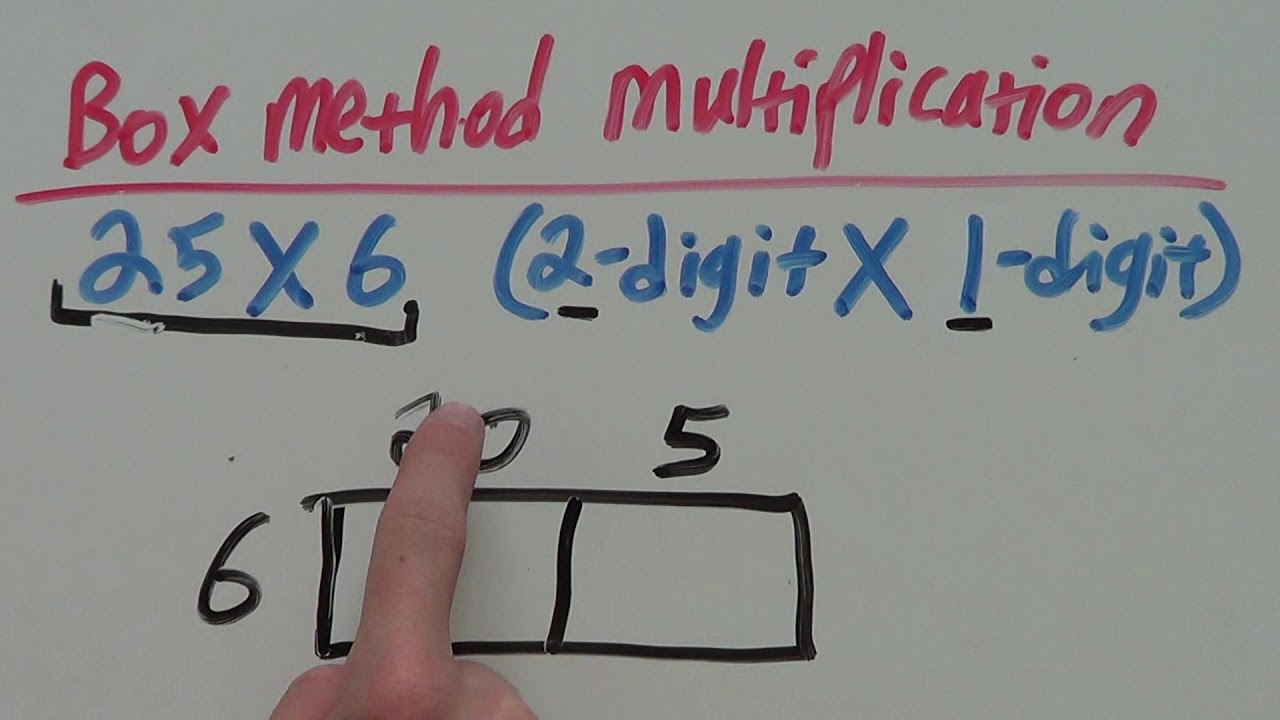 Box method multiplication
25 X 6 (2-digit X 1-digit)
20 5
6